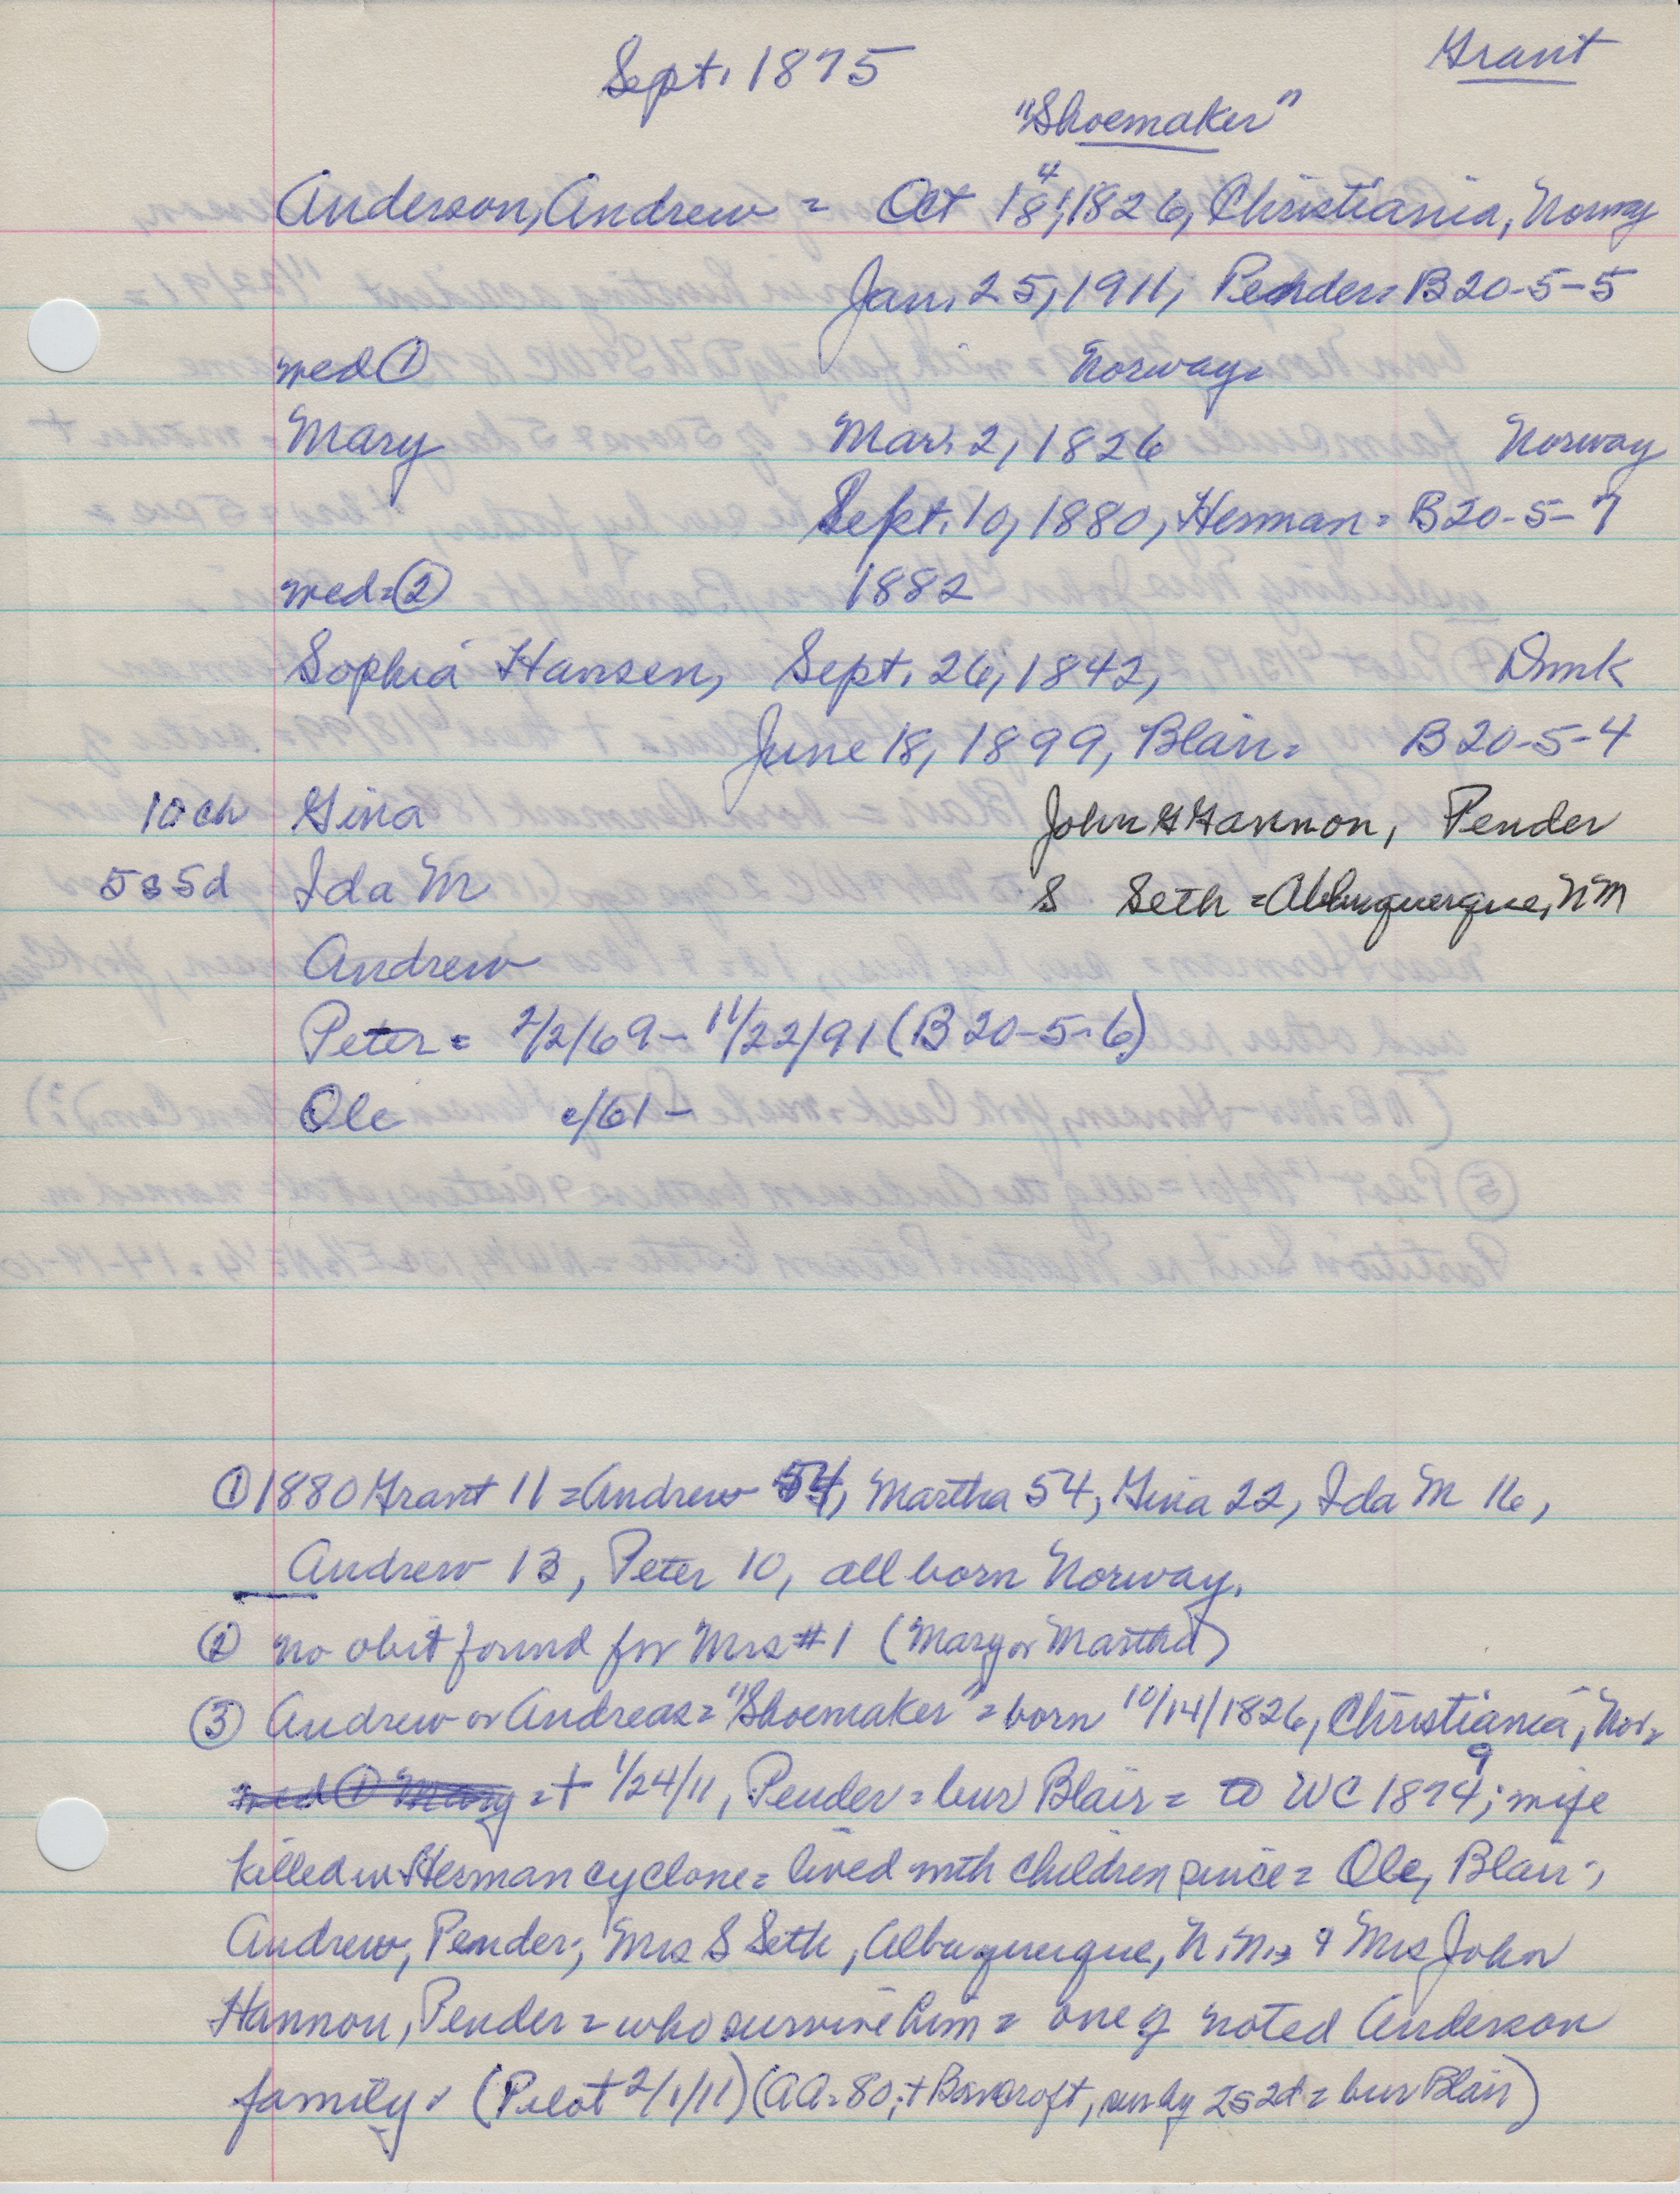 Sept. 1875
Grant
"Shoemaker"
Anderson, Andrew = Oct 18, 4 1826, Christiania, Norway
Jan. 25, 1911, Pender = B20-5-5
wed ① Norway =
Mary Mar. 2, 1826 Norway
Sept. 10, 1880, Herman = B20-5-7
wed = ② 1882
Sophia Hansen, Sept. 26, 1842, Dmk
June 18, 1899, Blair = B20-5-4
10 ch Gina John G Hannon, Pender
5s 5d Ida M S Seth = Albuquerque, NM
Andrew
Peter = 2/2/69 - 11/22/91 (B20-5-6)
Ole c/61 -
① 1880 Grant 11 = Andrew 54, Martha 54, Gina 22, Ida M 16,
Andrew 13, Peter 10, all born Norway.
② no obit found for Mrs #1 (Mary or Martha)
③ Andrew or Andreas = "Shoemaker" = born 10/14/1826, Christiania, Nor =
wed ① Mary = + 1/24/11, Pender = bur Blair = to WC 1874; 9 wife
killed in Herman cyclone = lived with children since = Ole, Blair;
Andrew, Pender; Mrs S Seth, Albuquerque, N.M. & Mrs John
Hannon, Pender = who survive him = one of noted Anderson
family. (Pilot 2/1/11) (AA = 80; + Bancroft, sur by 2s 2d = bur Blair)